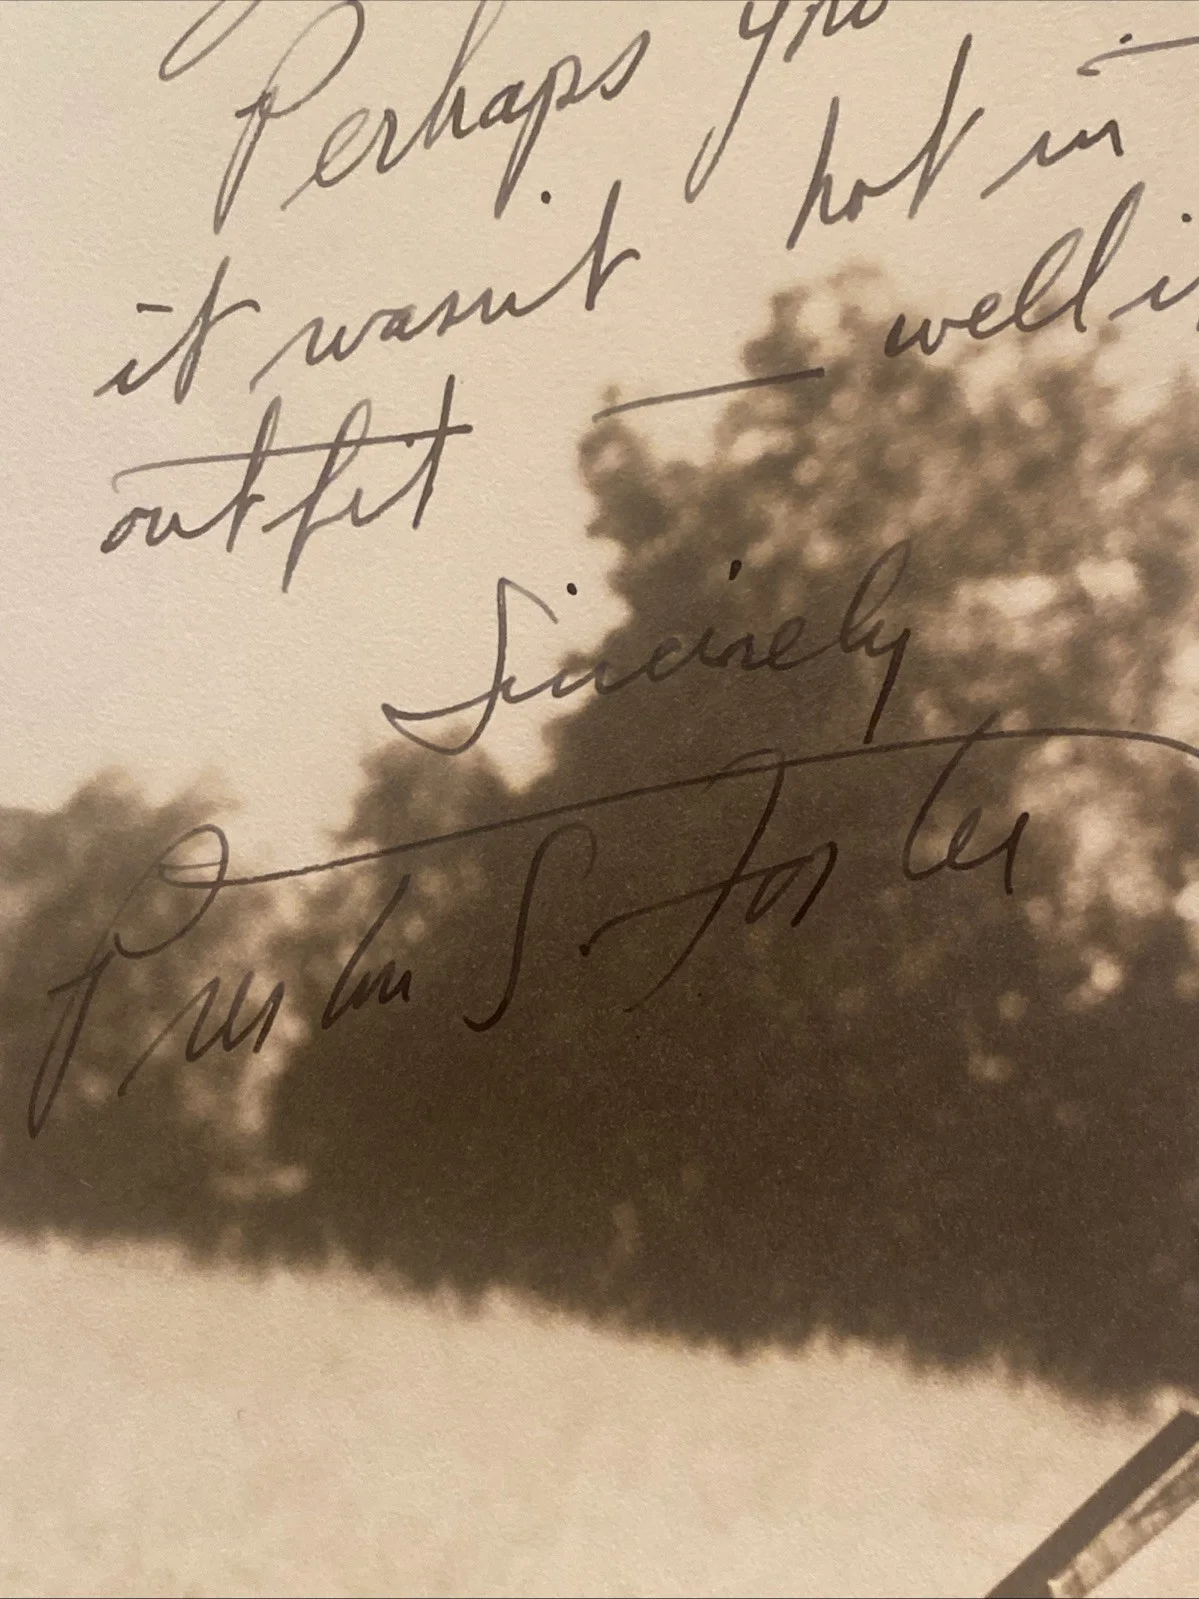 Perhaps you
it wasn't hot in
outfit — well
Sincerely
Preston S. Foster